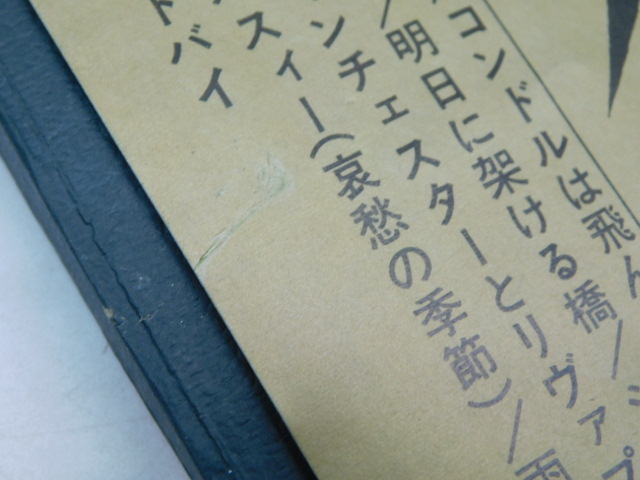 コンドルは飛ん
/明日に架ける橋/シ
ンチェスターとリヴァプ
スィー(哀愁の季節)/雨
ドバイ